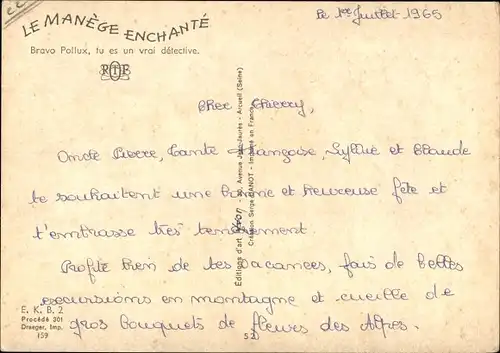 LE MANÈGE ENCHANTÉ
Bravo Pollux, tu es un vrai détective.
RTF
le 1er Juillet 1965
Cher Thierry,
Oncle Pierre, Tante Françoise, Sylvie et Claude
te souhaitent une bonne et heureuse fête et
t'embrasse très tendrement.
Profite bien de tes vacances, fais de belles
excursions en montagne et cueille de
gros bouquets de fleurs des Alpes.
Editions d'art Yvon - Avenue Jean-Jaurès - Arcueil (Seine)
Création Serge DANOT - Imprimé en France
E. K. B. 2
Procédé 301
Draeger, Imp.
159
52